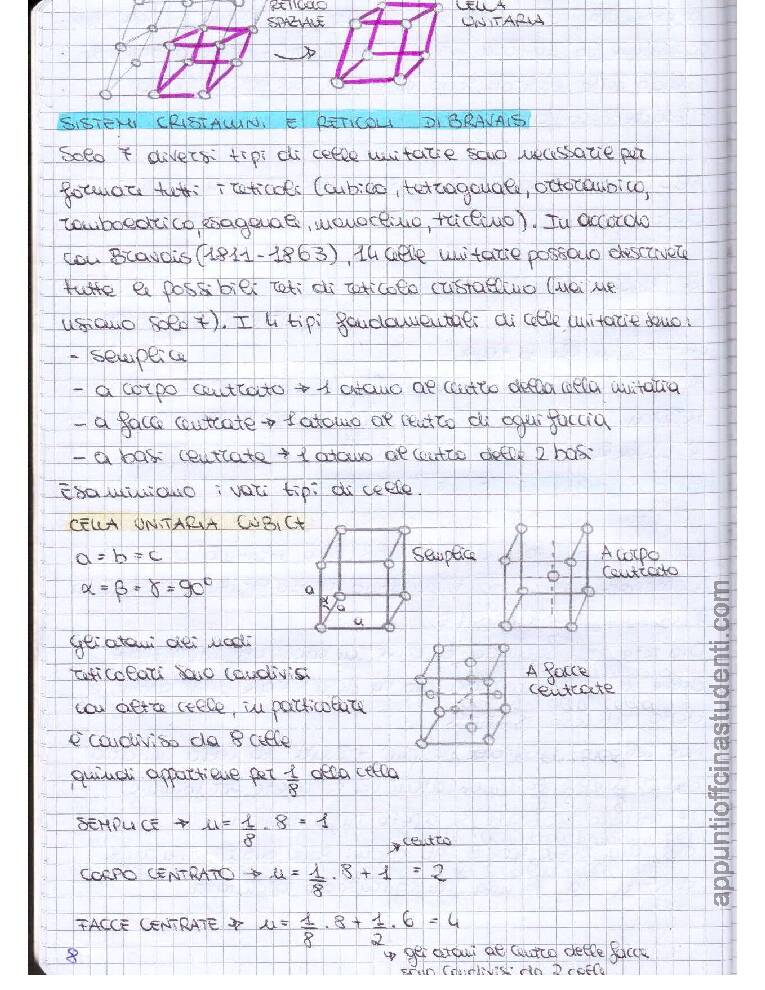 RETICOLO
SPAZIALE
CELLA
UNITARIA
SISTEMI CRISTALLINI E RETICOLI DI BRAVAIS
Solo 7 diversi tipi di celle unitarie sono necessarie per
formare tutti i reticoli (cubico, tetragonale, ortorombico,
romboedrico, esagonale, monoclino, triclino). In accordo
con Bravais (1811-1863), 14 celle unitarie possono descrivere
tutte le possibili reti di reticolo cristallino (noi ne
usiamo solo 7). I 4 tipi fondamentali di celle unitarie sono:
- semplice
- a corpo centrato → 1 atomo al centro della cella unitaria
- a facce centrate → 1 atomo al centro di ogni faccia
- a basi centrate → 1 atomo al centro delle 2 basi
Esaminiamo i vari tipi di celle.
CELLA UNITARIA CUBICA
a = b = c
α = β = γ = 90°
Semplice
a
A corpo
centrato
Gli atomi dei nodi
reticolari sono condivisi
con altre celle, in particolare
è condiviso da 8 celle
quindi appartiene per 1/8 alla cella
A facce
centrate
SEMPLICE → n = 1/8 · 8 = 1
→ centro
CORPO CENTRATO → n = 1/8 · 8 + 1 = 2
FACCE CENTRATE → n = 1/8 · 8 + 1/2 · 6 = 4
→ gli atomi al centro delle facce
sono condivisi da 2 celle
8
appuntiofficinastudenti.com